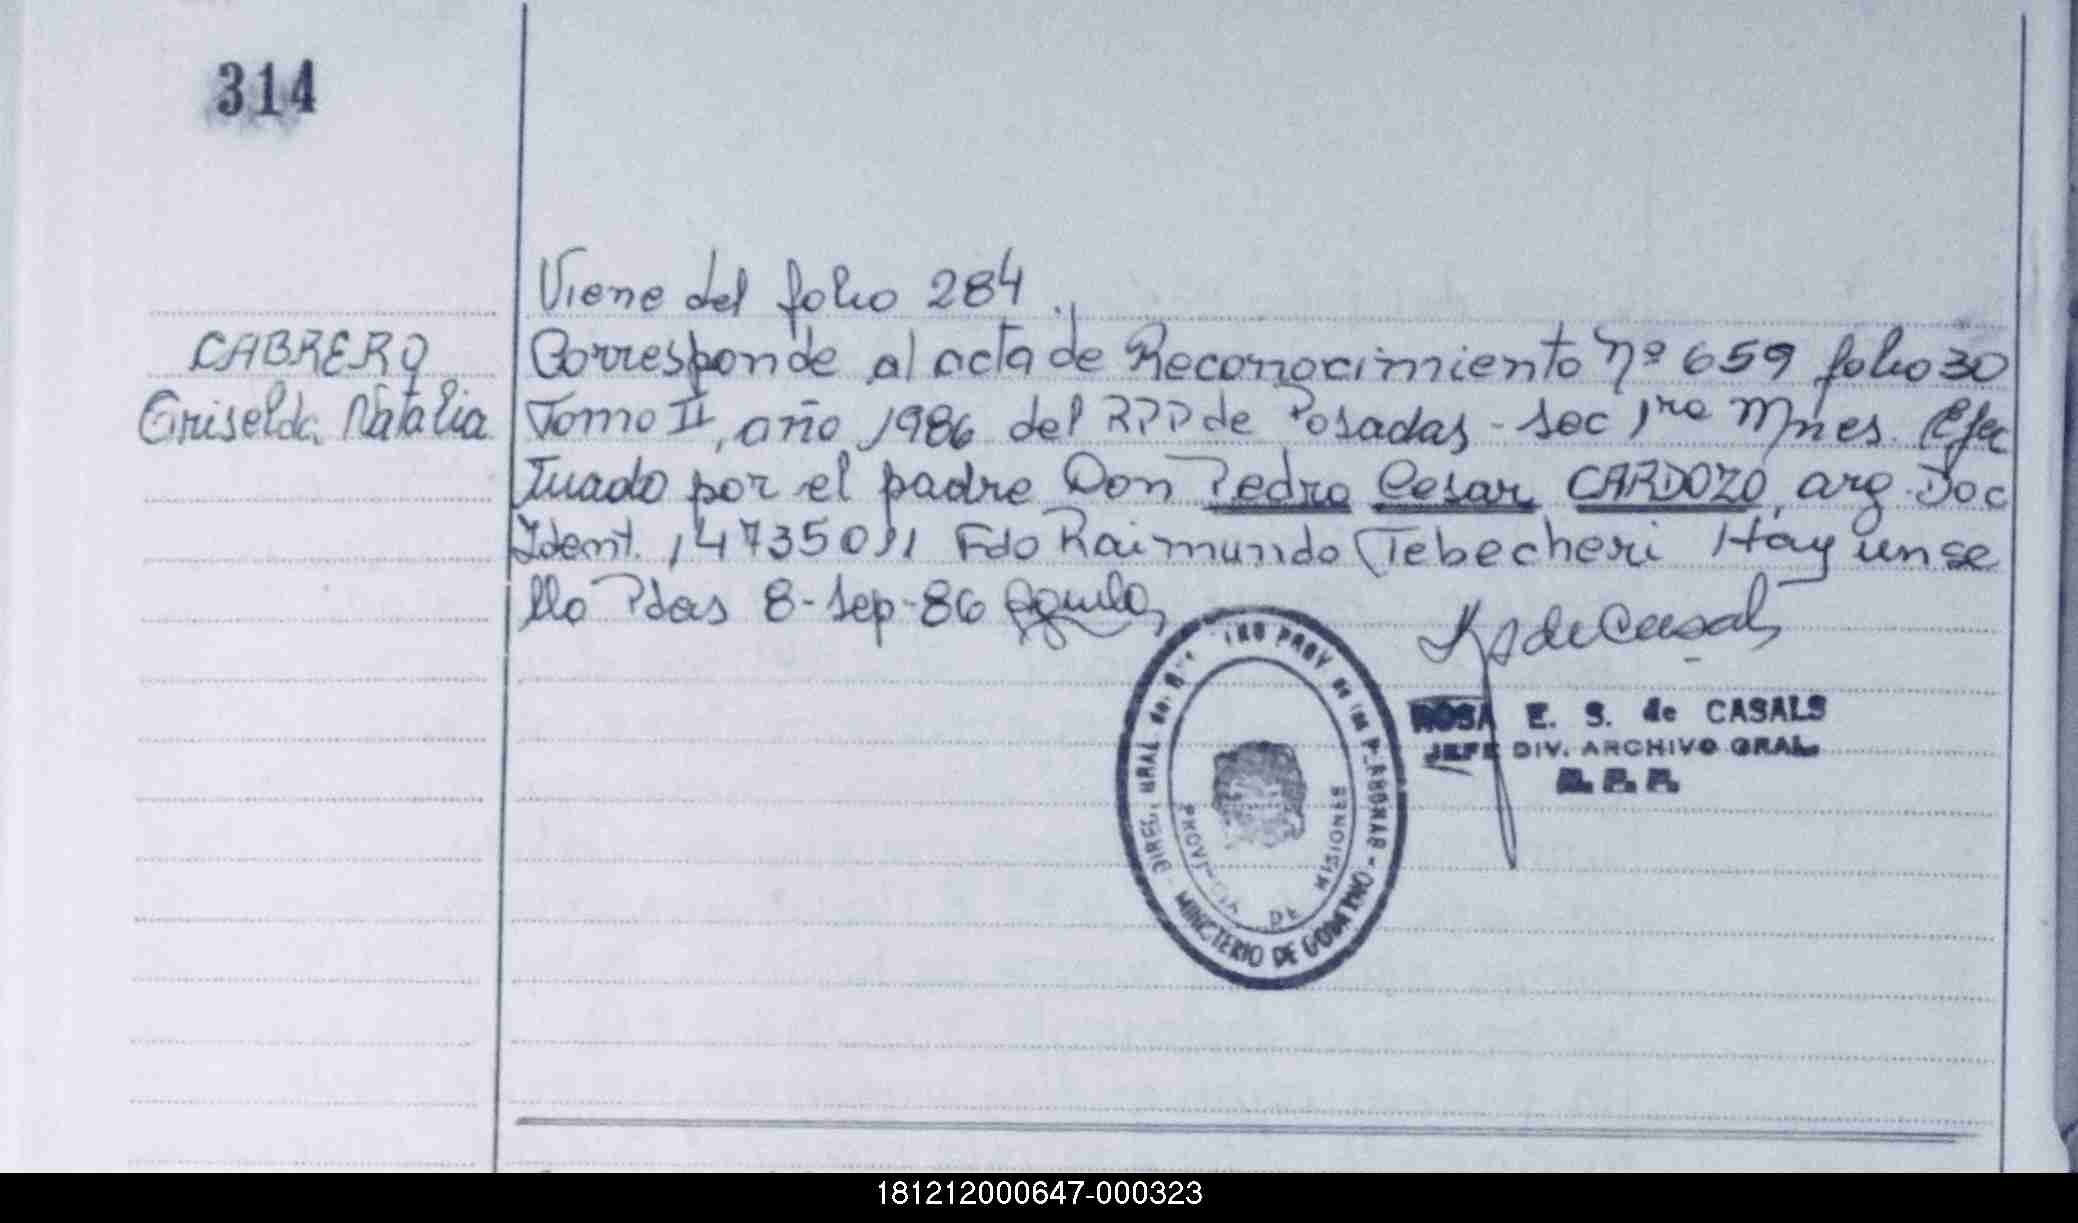 314
Viene del folio 284.
CABRERO
Griselda Natalia
Corresponde al acta de Reconocimiento Nº 659 folio 30
Tomo II, año 1986 del RPP de Posadas - sec 1ra Mnes. Efec
tuado por el padre Don Pedro Cesar CARDOZO, arg. Doc
Ident. 14735011 Fdo Raimundo Tebecheri Hay un se
llo Pdas 8-Sep-86
de Casals
ROSA E. S. de CASALS
JEFE DIV. ARCHIVO GRAL.
R. P. P.
GRAL del PROV. de las PERSONAS - MINISTERIO DE GOBIERNO
PROVINCIA DE MISIONES
181212000647-000323